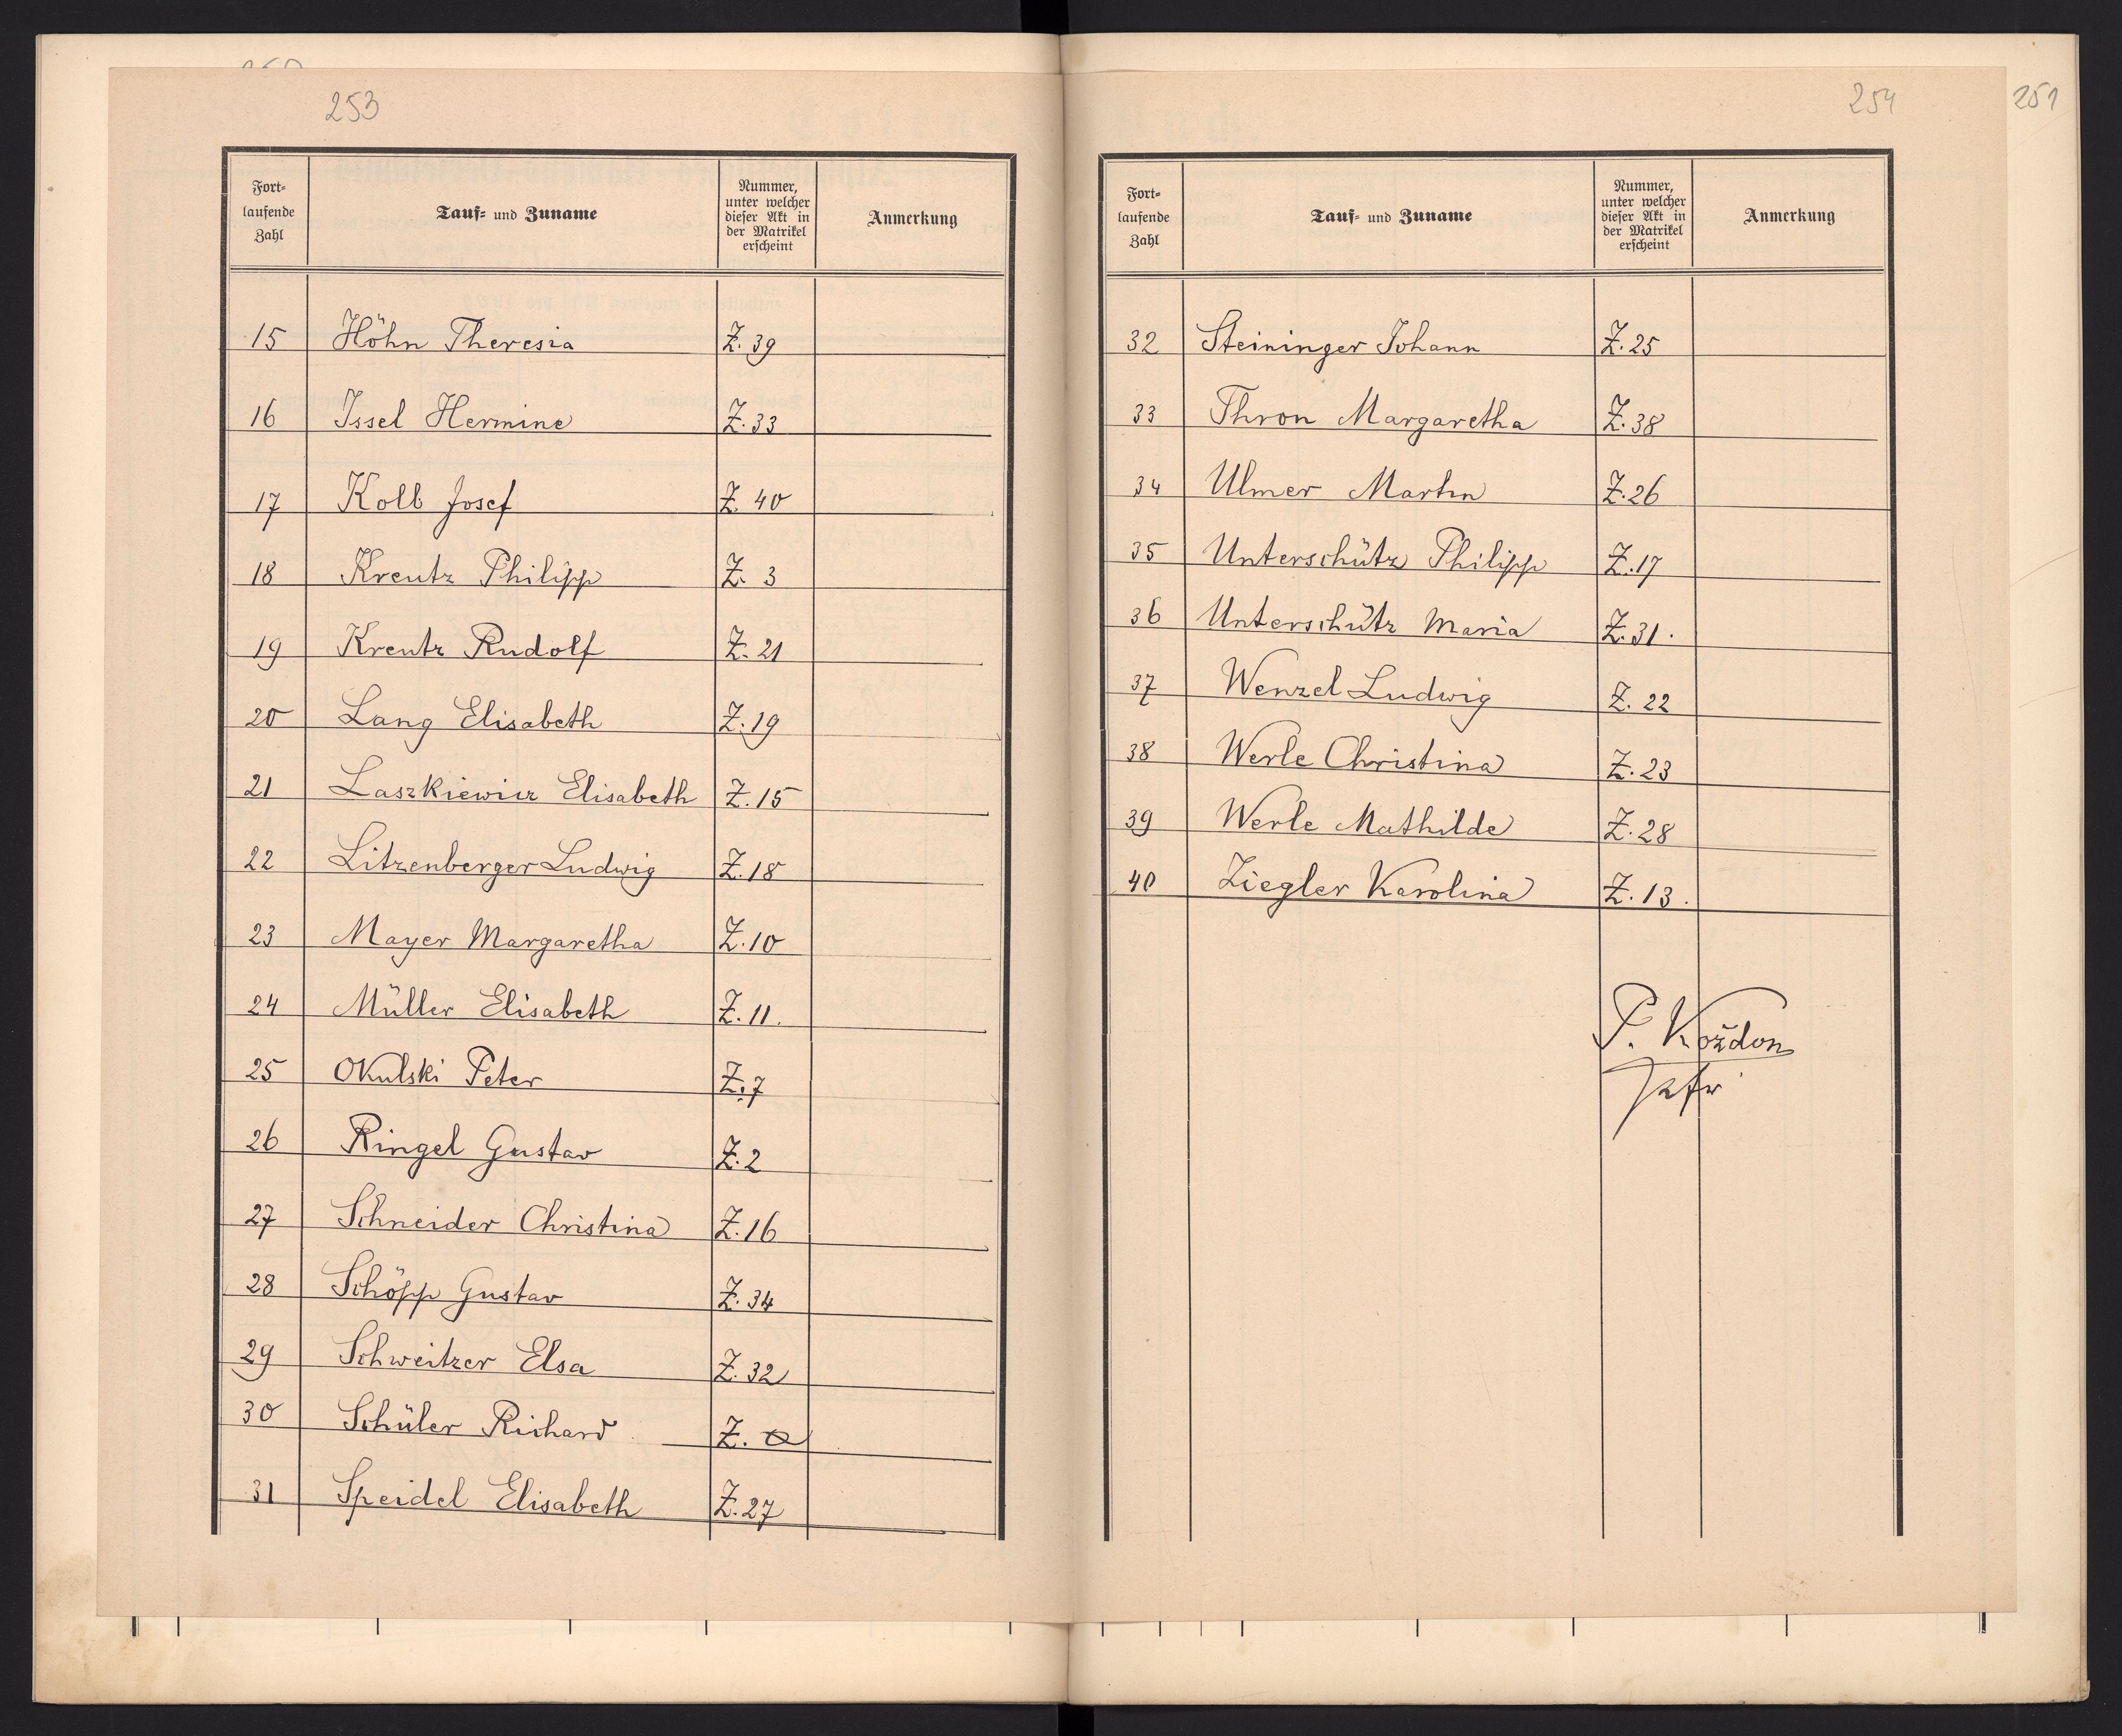 253
Fort-
laufende
Zahl
Tauf- und Zuname
Nummer,
unter welcher
dieser Akt in
der Matrikel
erscheint
Anmerkung
15 Höhn Theresia Z. 39
16 Issel Hermine Z. 33
17 Kolb Josef Z. 40
18 Kreutz Philipp Z. 3
19 Kreutz Rudolf Z. 21
20 Lang Elisabeth Z. 19
21 Laszkiewicz Elisabeth Z. 15
22 Litzenberger Ludwig Z. 18
23 Mayer Margaretha Z. 10
24 Müller Elisabeth Z. 11.
25 Okulski Peter Z. 7
26 Ringel Gustav Z. 2
27 Schneider Christina Z. 16
28 Schöpp Gustav Z. 34
29 Schweitzer Elsa Z. 32
30 Schüler Richard Z.
31 Speidel Elisabeth Z. 27
254
251
Fort-
laufende
Zahl
Tauf- und Zuname
Nummer,
unter welcher
dieser Akt in
der Matrikel
erscheint
Anmerkung
32 Steininger Johann Z. 25
33 Thron Margaretha Z. 38
34 Ulmer Martin Z. 26
35 Unterschütz Philipp Z. 17
36 Unterschütz Maria Z. 31.
37 Wenzel Ludwig Z. 22
38 Werle Christina Z. 23
39 Werle Mathilde Z. 28
40 Ziegler Karolina Z. 13.
P. Kożdon